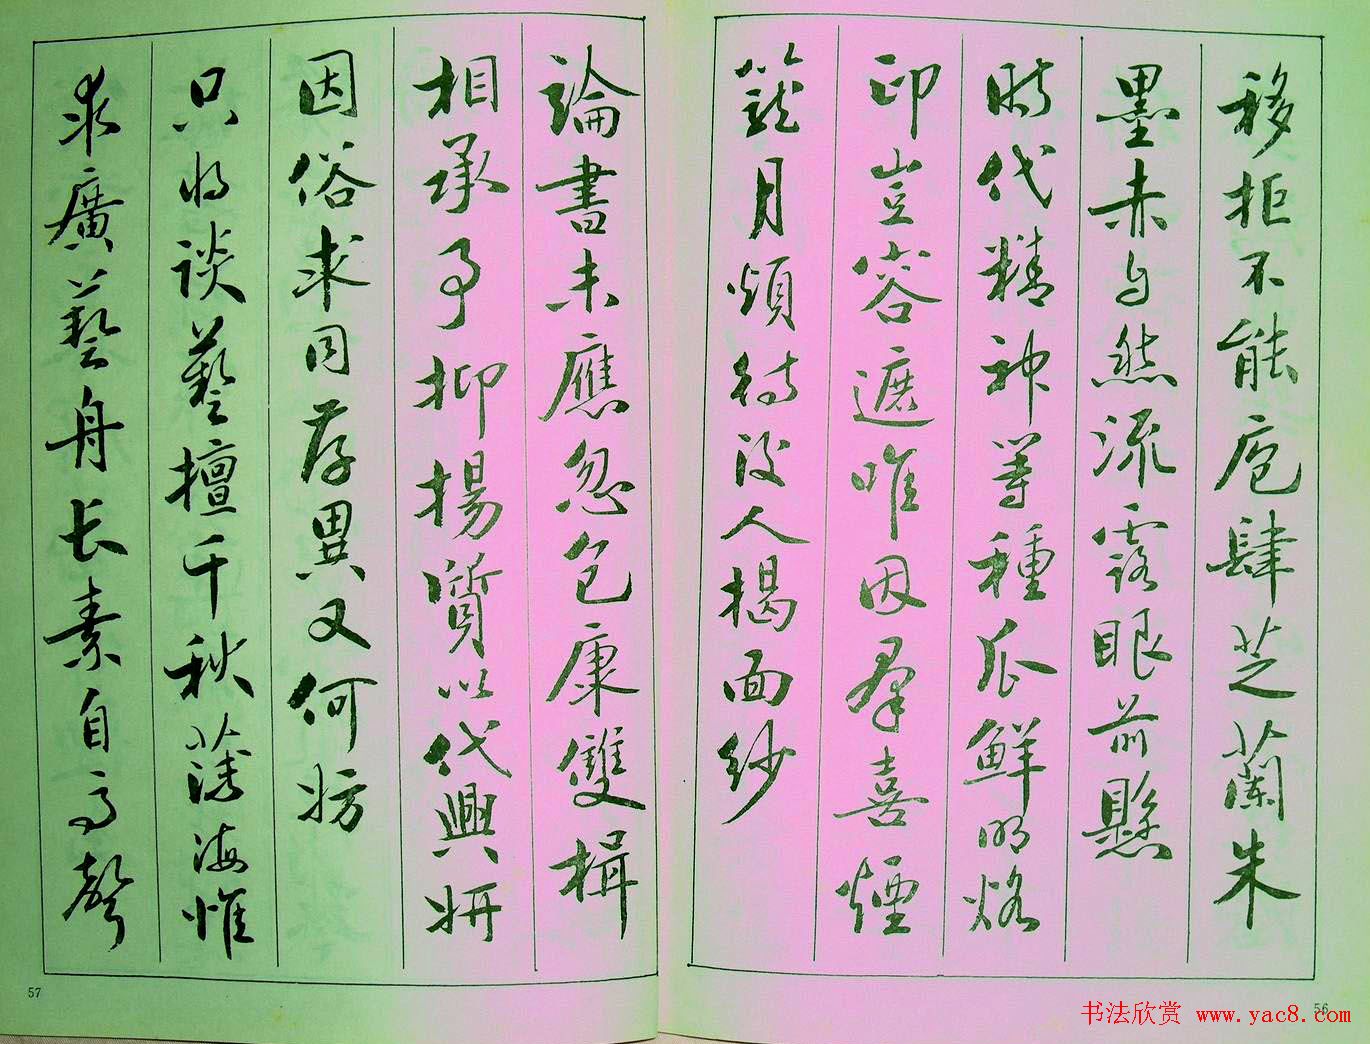 移拒不能庖肆芝蘭朱
墨赤与然流露眼前懸
時代精神等種瓜鮮明烙
印豈容遮唯因羣喜煙
籠月煩待後人揭面紗
論書未應忽包康雙楫
相承予抑揚質以代興妍
因俗求同存異又何妨
只将談藝擅千秋藻海惟
求廣藝舟长素自高聲
57
56
书法欣赏 www.yac8.com